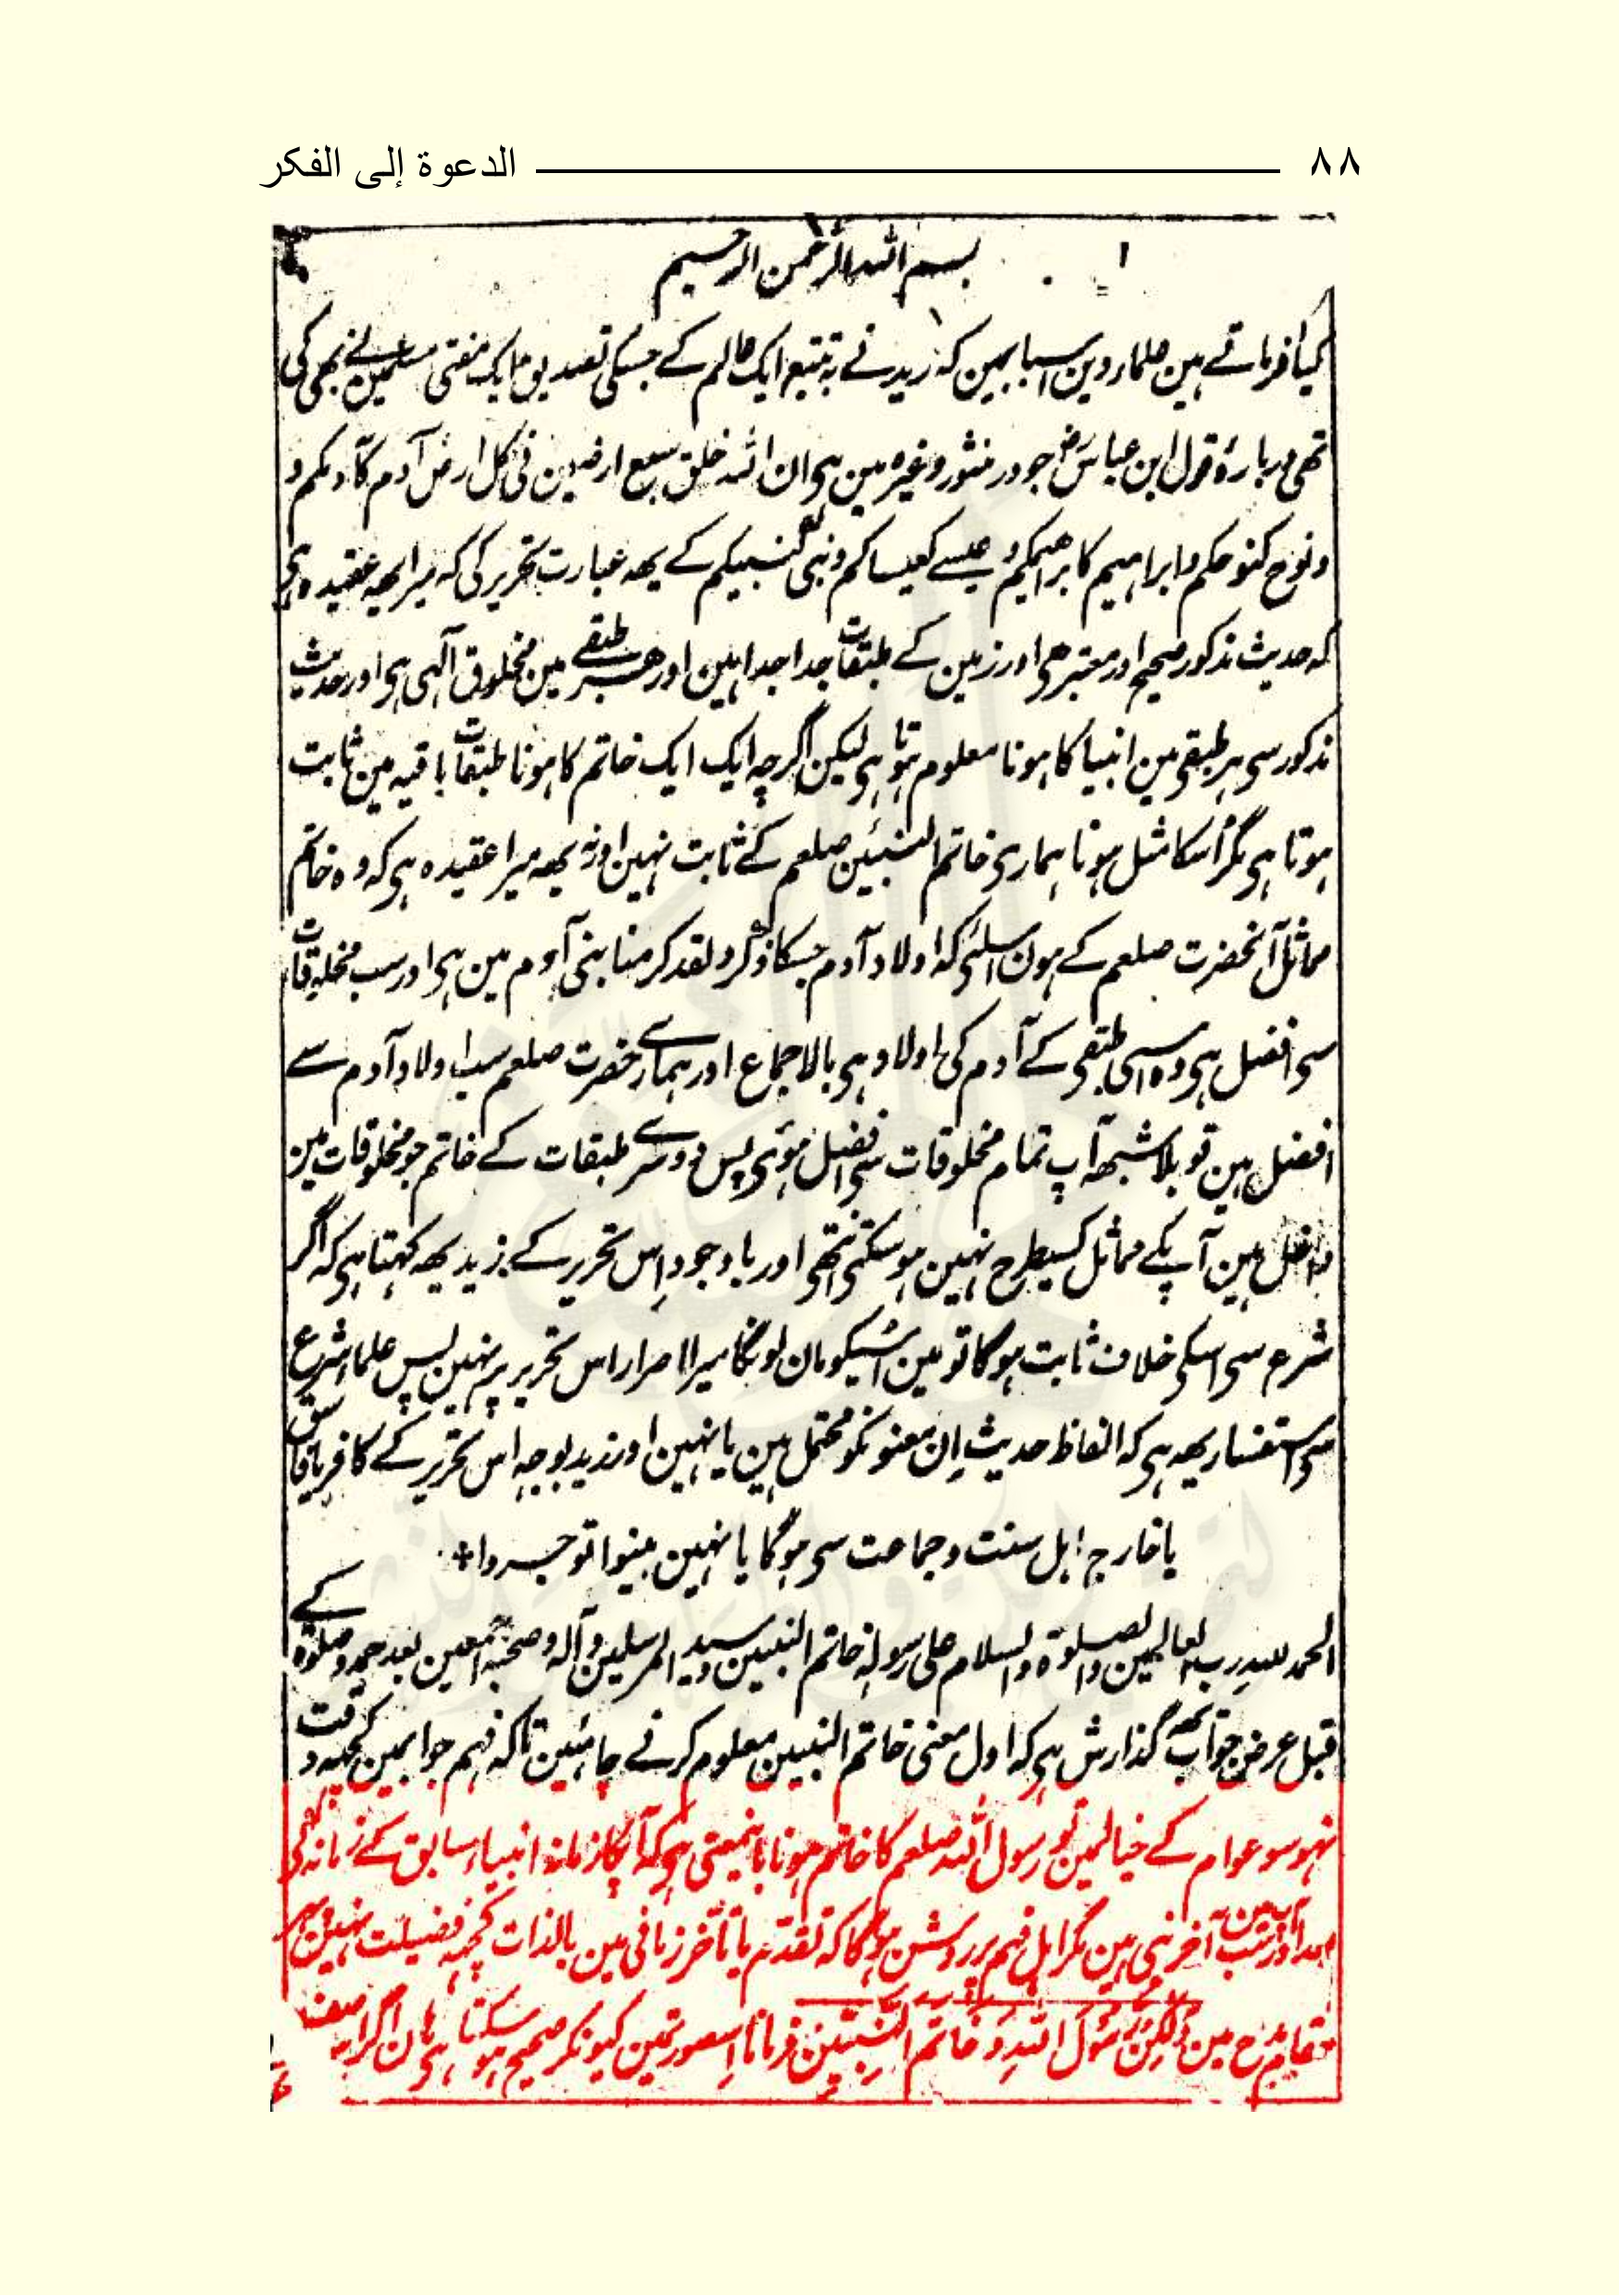 ٨٨ الدعوة إلى الفكر
١ بسم الله الرحمن الرحيم
کیا فرماتے ہین علماء دین اسبابمین کہ زید نے بہ تتبع ایک عالم کے جسکی تصدیق ایک مفتی مسلمین نے بھی کی
تھی دربارۂ قول ابن عباسؓ جو در منثور وغیرہ مین ہی ان اللہ خلق سبع ارضین فی کل ارض آدم کآدمکم و
و نوح کنوحکم و ابراہیم کابراہیمکم و عیسے کعیساکم و نبی کنبیکم کے یہہ عبارت تحریر کی کہ میرا یہہ عقیدہ ہی
کہ حدیث مذکور صحیح اور معتبر ہی اور زمین کے طبقات جدا جدا ہین اور ہر طبقے مین مخلوق آلہی ہی اور حدیث
مذکور سی ہر طبقی مین انبیا کا ہونا معلوم ہوتا ہی لیکن اگرچہ ایک ایک خاتم کا ہونا طبقات باقیہ مین ثابت
ہوتا ہی مگر اُسکا مثل ہونا ہماری خاتم النبیین صلعم کے ثابت نہین اور نہ یہہ میرا عقیدہ ہی کہ وہ خاتم
مماثل آنحضرت صلعم کے ہون اسلئی کہ اولاد آدم جسکا ذکر و لقد کرمنا بنی آدم مین ہی اور سب مخلوقات
سی افضل ہی وہ اسی طبقی کے آدم کی اولاد ہی بالاجماع اور ہمارے حضرت صلعم سب اولاد آدم سے
افضل ہین تو بلا شبہہ آپ تمام مخلوقات سی افضل ہوئی پس دوسرے طبقات کے خاتم جو مخلوقات مین
داخل ہین آپکے مماثل کسیطرح نہین ہو سکتی اور باوجود اِس تحریر کے زید یہہ کہتا ہی کہ اگر
شرع سی اسکی خلاف ثابت ہوگا تو مین اُسیکو مان لونگا میرا اصرار اس تحریر پر نہین پس علماء شرع
سی استفسار یہہ ہی کہ الفاظ حدیث اِن معنونکو محتمل ہین یا نہین اور زید بوجہ اس تحریر کے کافر یا فاسق
یا خارج اہل سنت و جماعت سی ہوگا یا نہین بینوا توجروا ٭
الحمد للہ رب العالمین والصلوۃ والسلام علی رسولہ خاتم النبیین و سید المرسلین و آلہ و صحبہ اجمعین بعد حمد و صلوۃ کے
قبل عرض جواب یہہ گذارش ہی کہ اول معنی خاتم النبیین معلوم کرنے چاہئین تاکہ فہم جوابمین کچہہ دقت
نہو سو عوام کے خیالمین تو رسول اللہ صلعم کا خاتم ہونا باینمعنی ہی کہ آپکا زمانہ انبیاء سابق کے زمانہ کی
بعد اور آپ سب مین آخر نبی ہین مگر اہل فہم پر روشن ہوگا کہ تقدّم یا تأخّر زمانی مین بالذات کچہہ فضیلت نہین پھر
مقام مدح مین وَلٰکِن رَّسُولَ اللّٰہِ وَ خَاتَمَ النَّبِیّٖنَ فرمانا اِسصورتمین کیونکر صحیح ہو سکتا ہی ہان اگر اس وصف